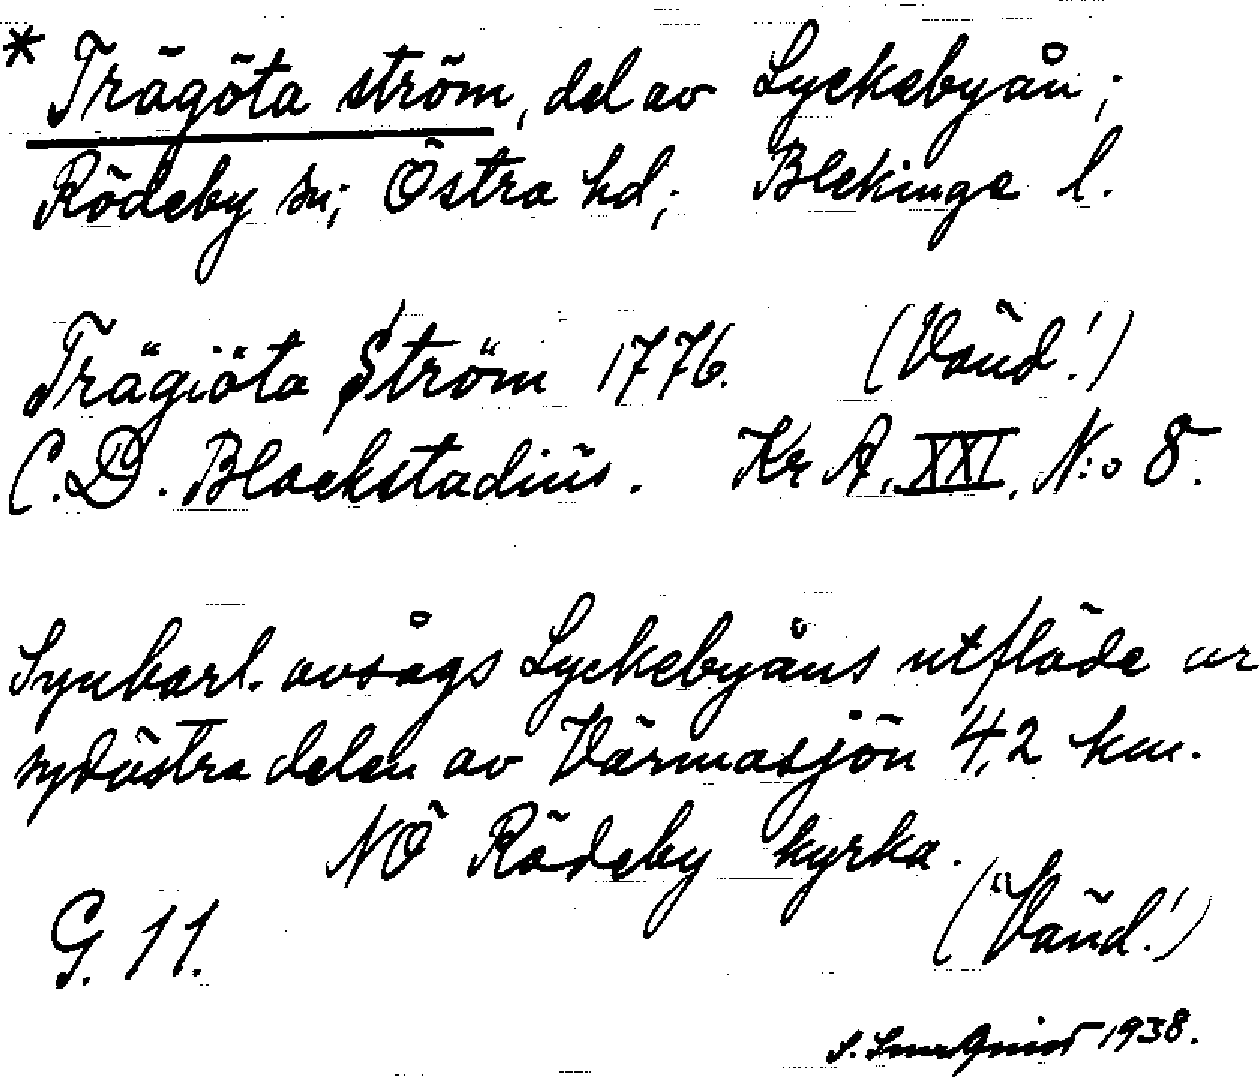 * Trägöta ström, del av Lyckebyån;
Rödeby sn; Östra hd; Blekinge l.
Trägiöta Ström 1776. (Vänd!)
C. D. Blackstadius. Kr A, XXI, N:o 8.
Synbarl. avsågs Lyckebyåns utflöde ur
sydöstra delen av Värmasjön 4,2 km.
NÖ Rödeby kyrka.
G. 11. (Vänd!)
S. 1938.